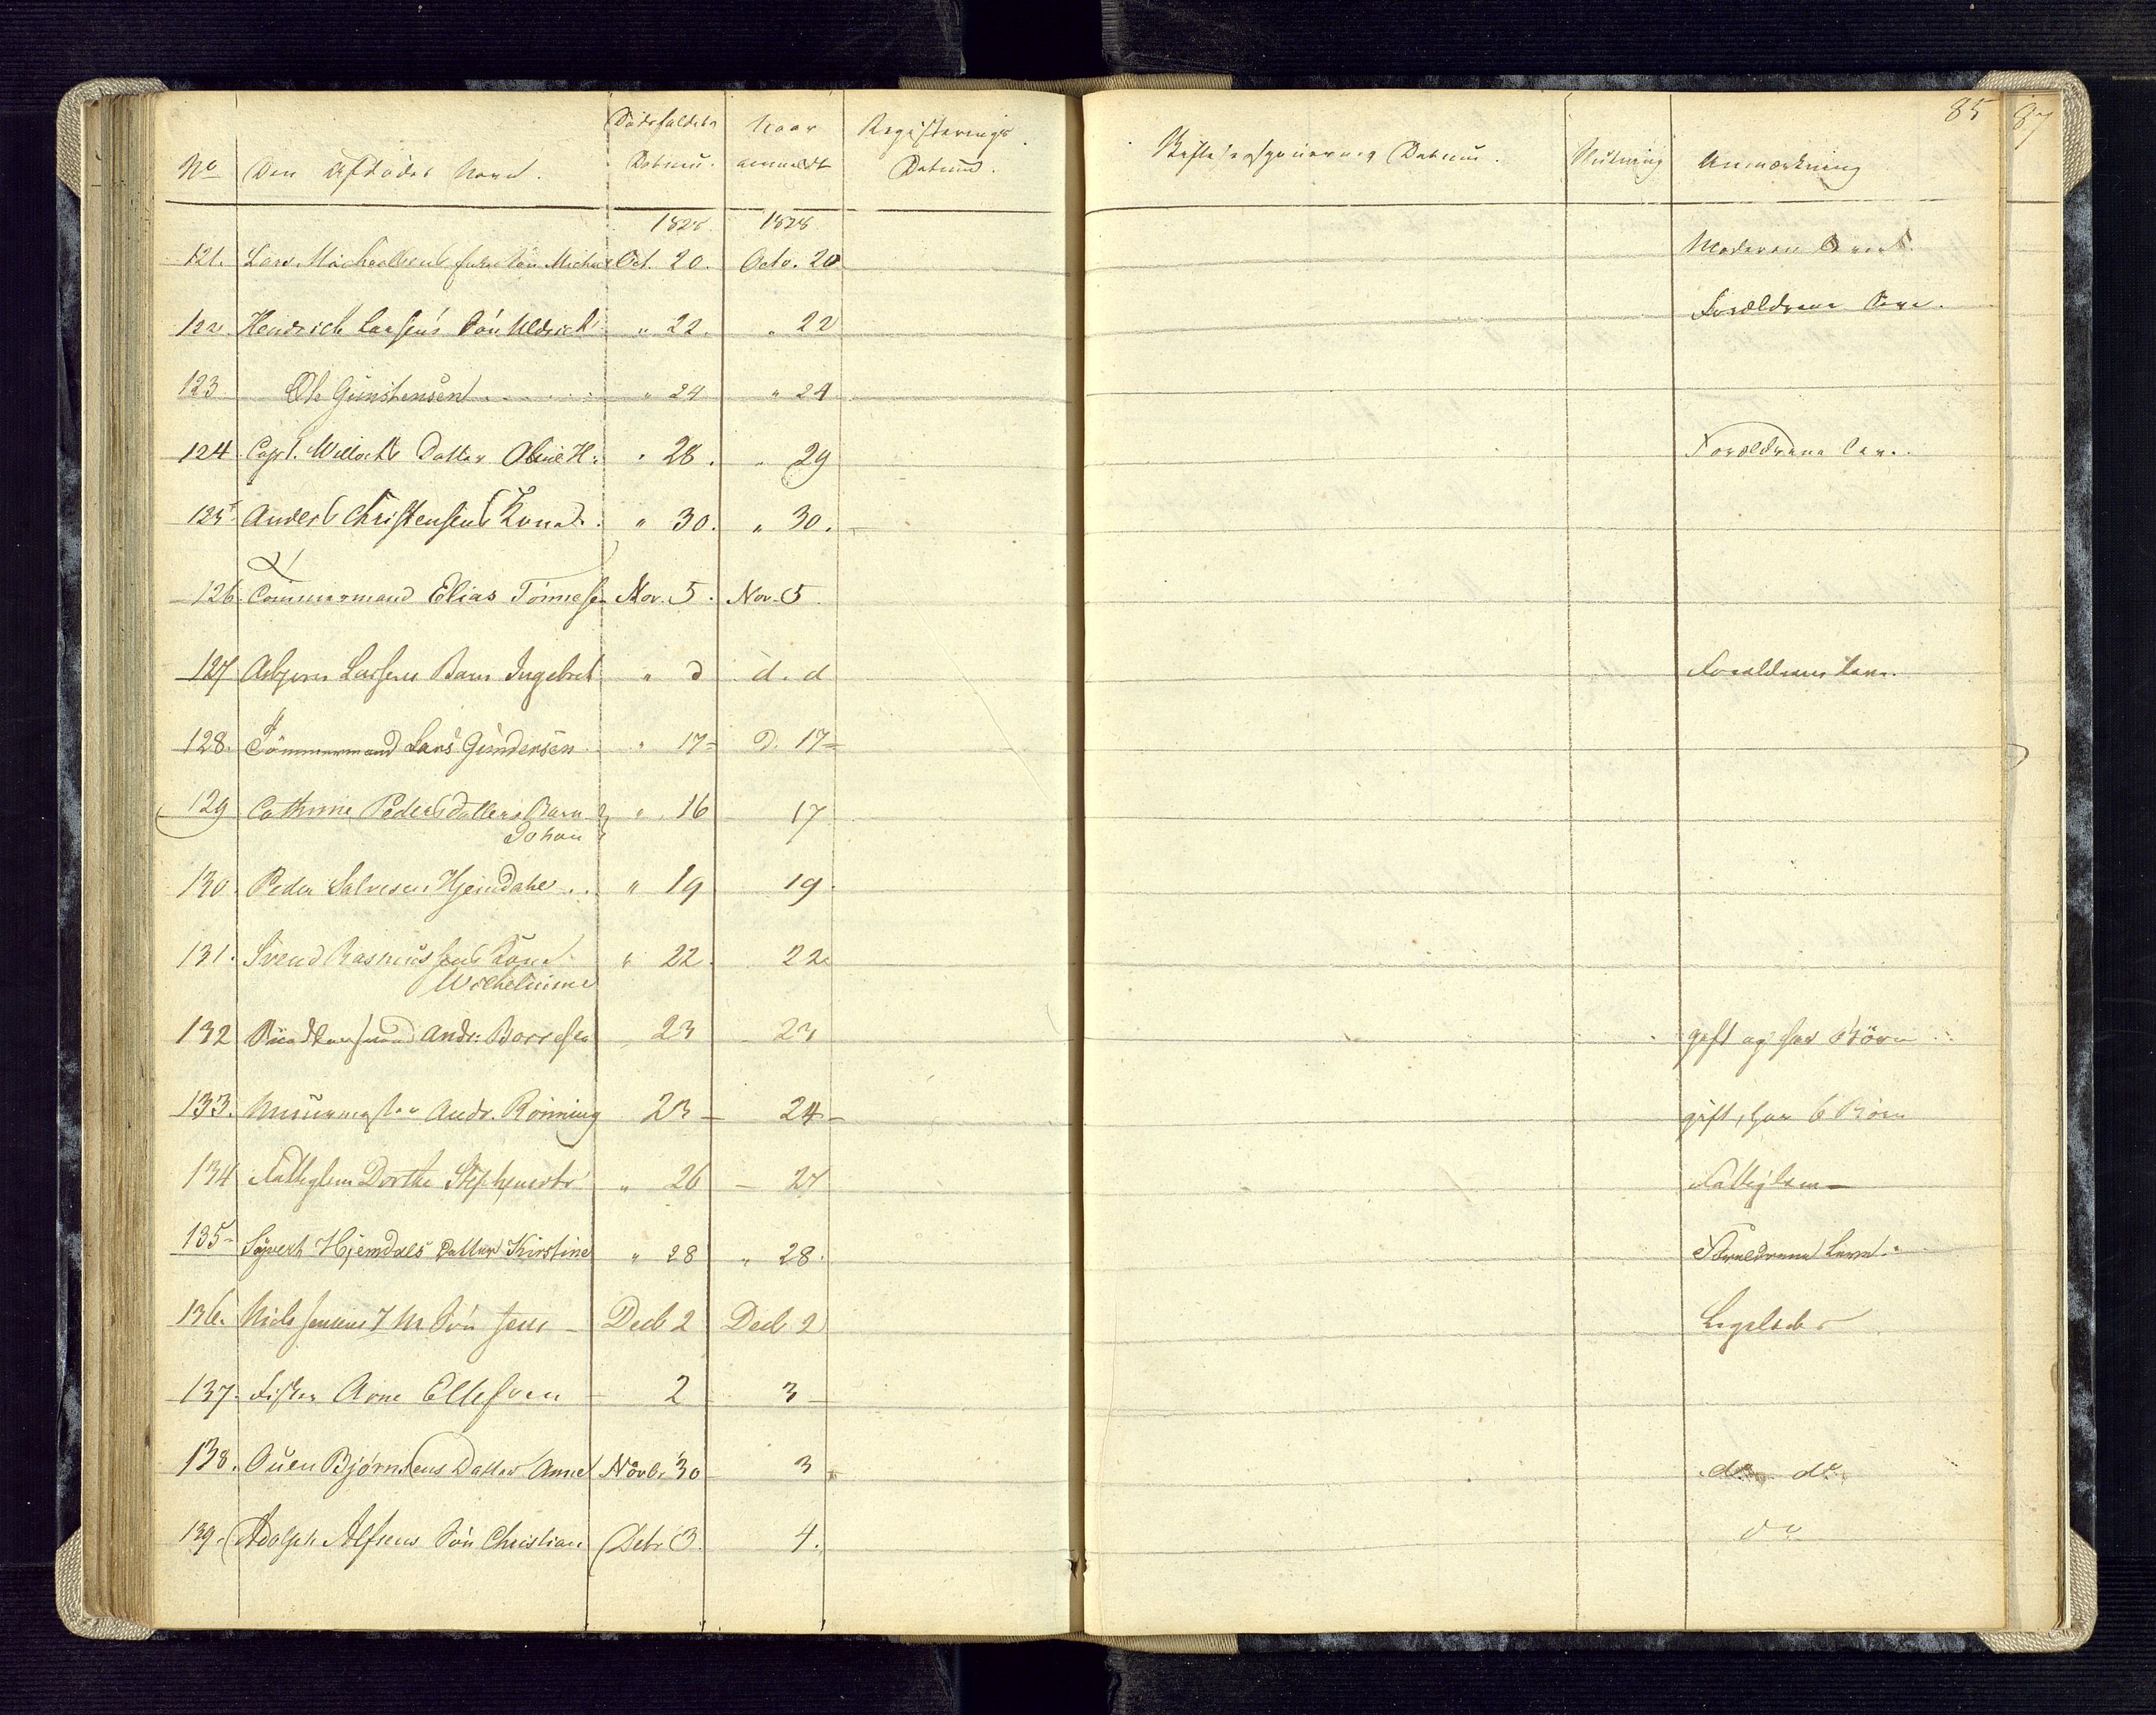 85 87
No Den Afdødes Navn. Dødsfaldets Datum. Naar anmeldt Registerings Datum. Datum. Slutning Anmærkning
1828 1828
121. Lars Michaelsens Søn Michael Oct. 20. Octo. 20 Moderen
122 Hendrich Larsens Søn Uldrich " 22. " 22 Forældrene leve.
123 Ole Gunstensen " 24 " 24
124 Capt. Willochs Datter Oline H: " 28. " 29 Forældrene leve.
125 Anders Christensens Kone. " 30. " 30.
126. Tømmermand Elias Tönnesen Nov. 5. Nov. 5
127 Asbjørn Larsens Barn Ingebret " d d. d Forældrene leve.
128. Tömmermand Lars Gundersen. " 17 d. 17
129 Cathrine Pedersdatters Barn Johan " 16 17
130. Peder Salvesen Hjemdahl " 19 19.
131. Svend Rasmussens Kone Wilhelmine " 22. 22
132 Andr: Borresen 23 23 gift og har Börn
133. Muurmester Andr. Rönning 23 24 gift, har 6 Börn
134 Fattiglem Dorthe Stephensdr " 26 27 Fattiglem
135 Syvert Hjemdals Datter Kirstine " 28 " 28. Forældrene leve.
136. Niels Jensens Søn Jens Decb 2 Decb 2
137. Fisker Arne Ellefsen 2 3
138. Ouen Bjørnsens Datter Anne Novb. 30 3 do do
139. Adolph Alfsens Søn Christian Debr 3. 4. do